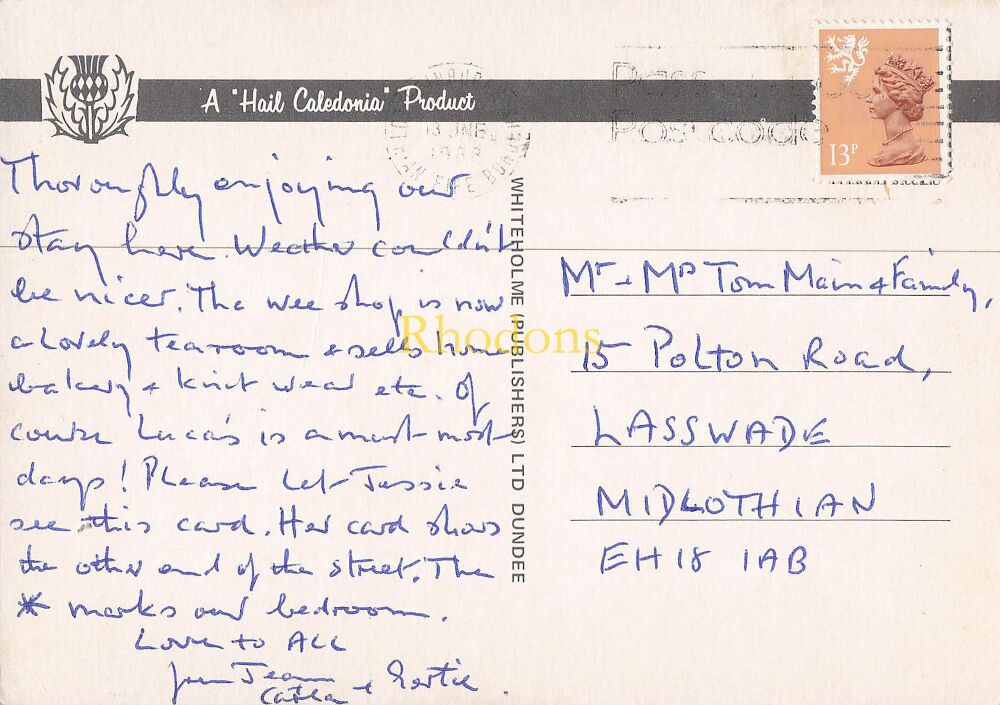 A "Hail Caledonia" Product
13 JNE
Postcode
13P
Thoroughly enjoying our
stay here. Weather couldn't
be nicer. The wee shop is now
a lovely tearoom & sells home
bakery & knit wear etc. Of
course Luca's is a must most
days! Please let Jessie
see this card. Her card shows
the other end of the street. The
* marks our bedroom.
Love to ALL
from Jean
&
WHITEHOLME (PUBLISHERS) LTD DUNDEE
Mr & Mrs Tom Main & Family,
15 Polton Road,
LASSWADE
MIDLOTHIAN
EH18 1AB
Rhodons